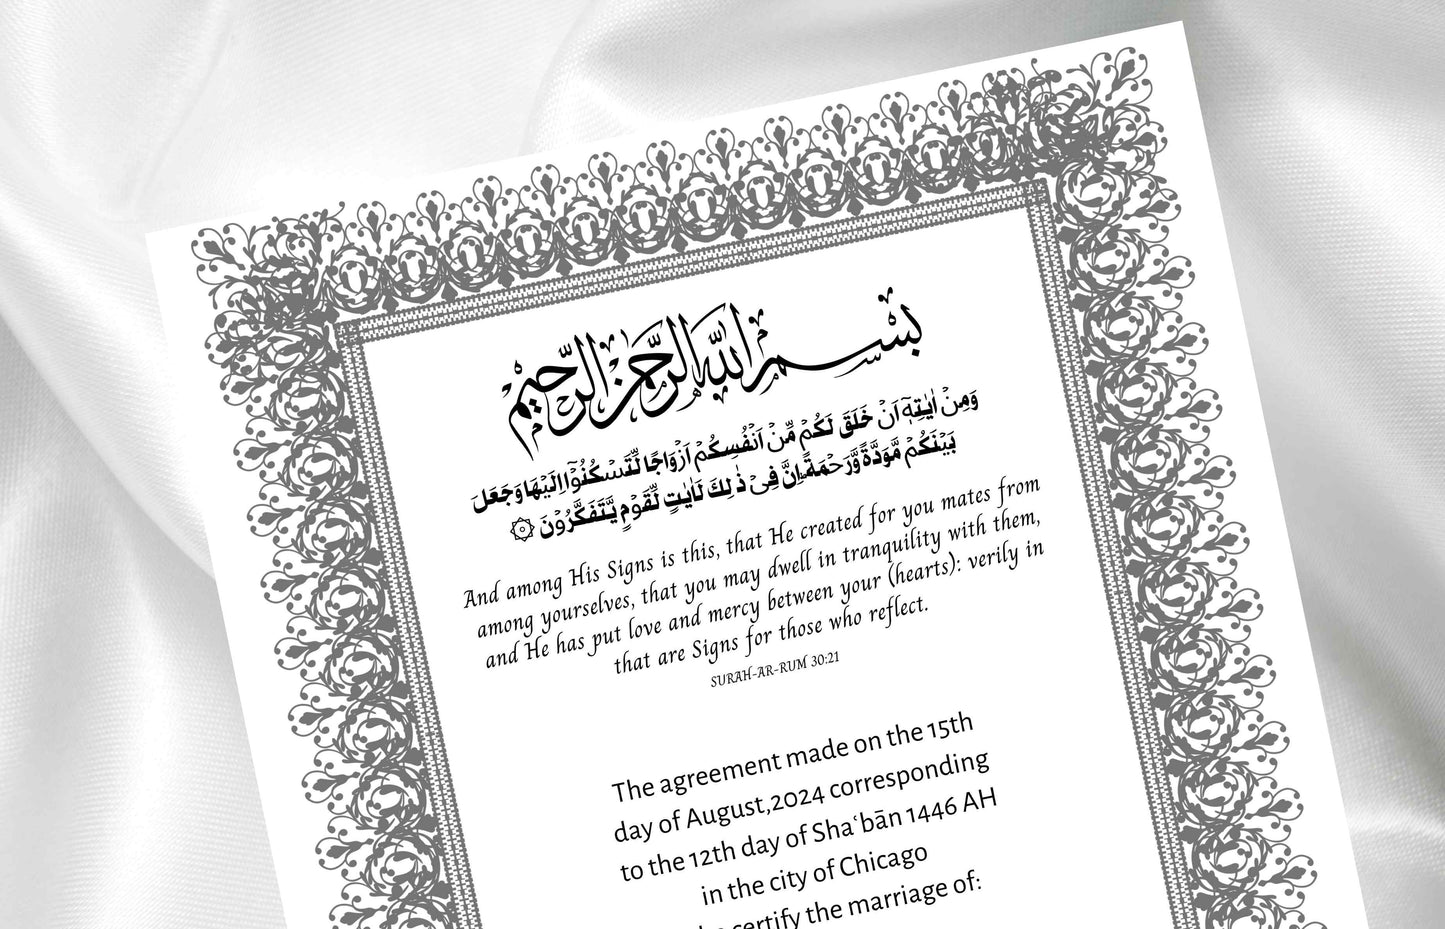 بسم الله الرحمن الرحيم
وَمِنْ اٰيٰتِهٖٓ اَنْ خَلَقَ لَكُمْ مِّنْ اَنْفُسِكُمْ اَزْوَاجًا لِّتَسْكُنُوْٓا اِلَيْهَا وَجَعَلَ
بَيْنَكُمْ مَّوَدَّةً وَّرَحْمَةً ؕ اِنَّ فِيْ ذٰلِكَ لَاٰيٰتٍ لِّقَوْمٍ يَّتَفَكَّرُوْنَ ۞
And among His Signs is this, that He created for you mates from
among yourselves, that you may dwell in tranquility with them,
and He has put love and mercy between your (hearts): verily in
that are Signs for those who reflect.
SURAH-AR-RUM 30:21
The agreement made on the 15th
day of August,2024 corresponding
to the 12th day of Shaʿbān 1446 AH
in the city of Chicago
certify the marriage of: